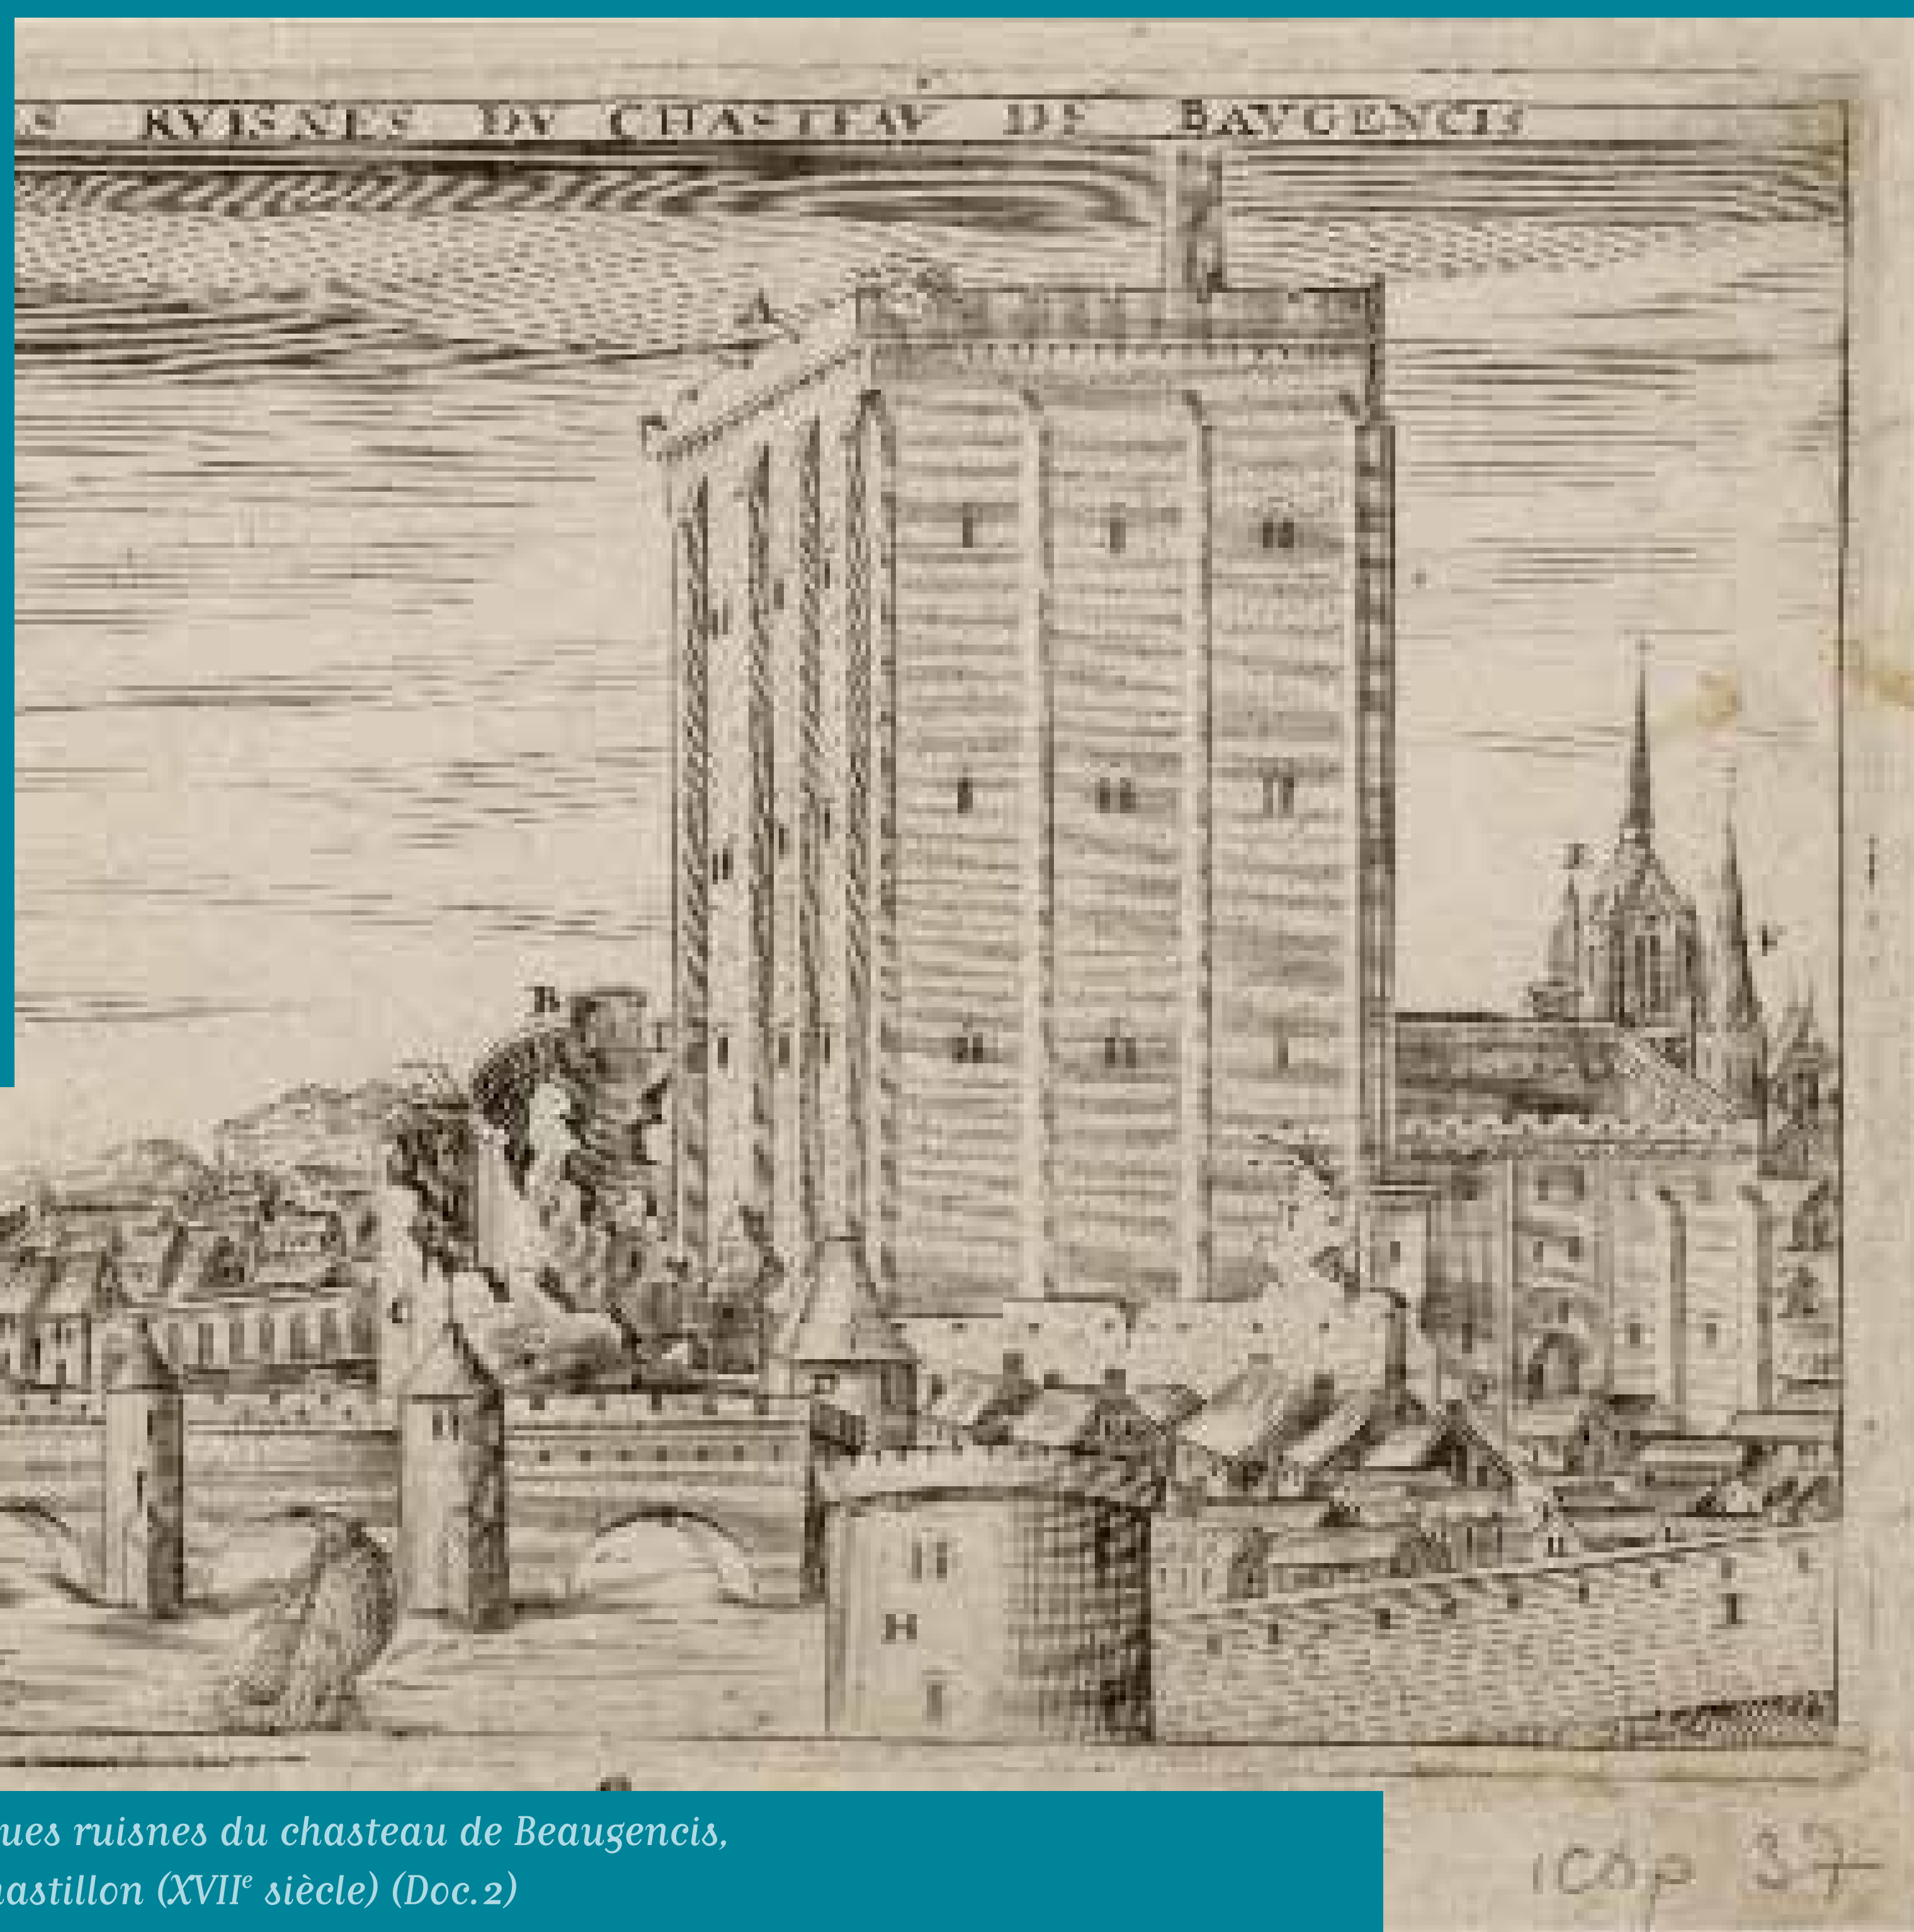 S RVISNES DV CHASTEAV DE BAVGENCIS
A
B
F
F
C
H
I
ues ruisnes du chasteau de Beaugencis,
astillon (XVIIe siècle) (Doc.2)
icsp 37